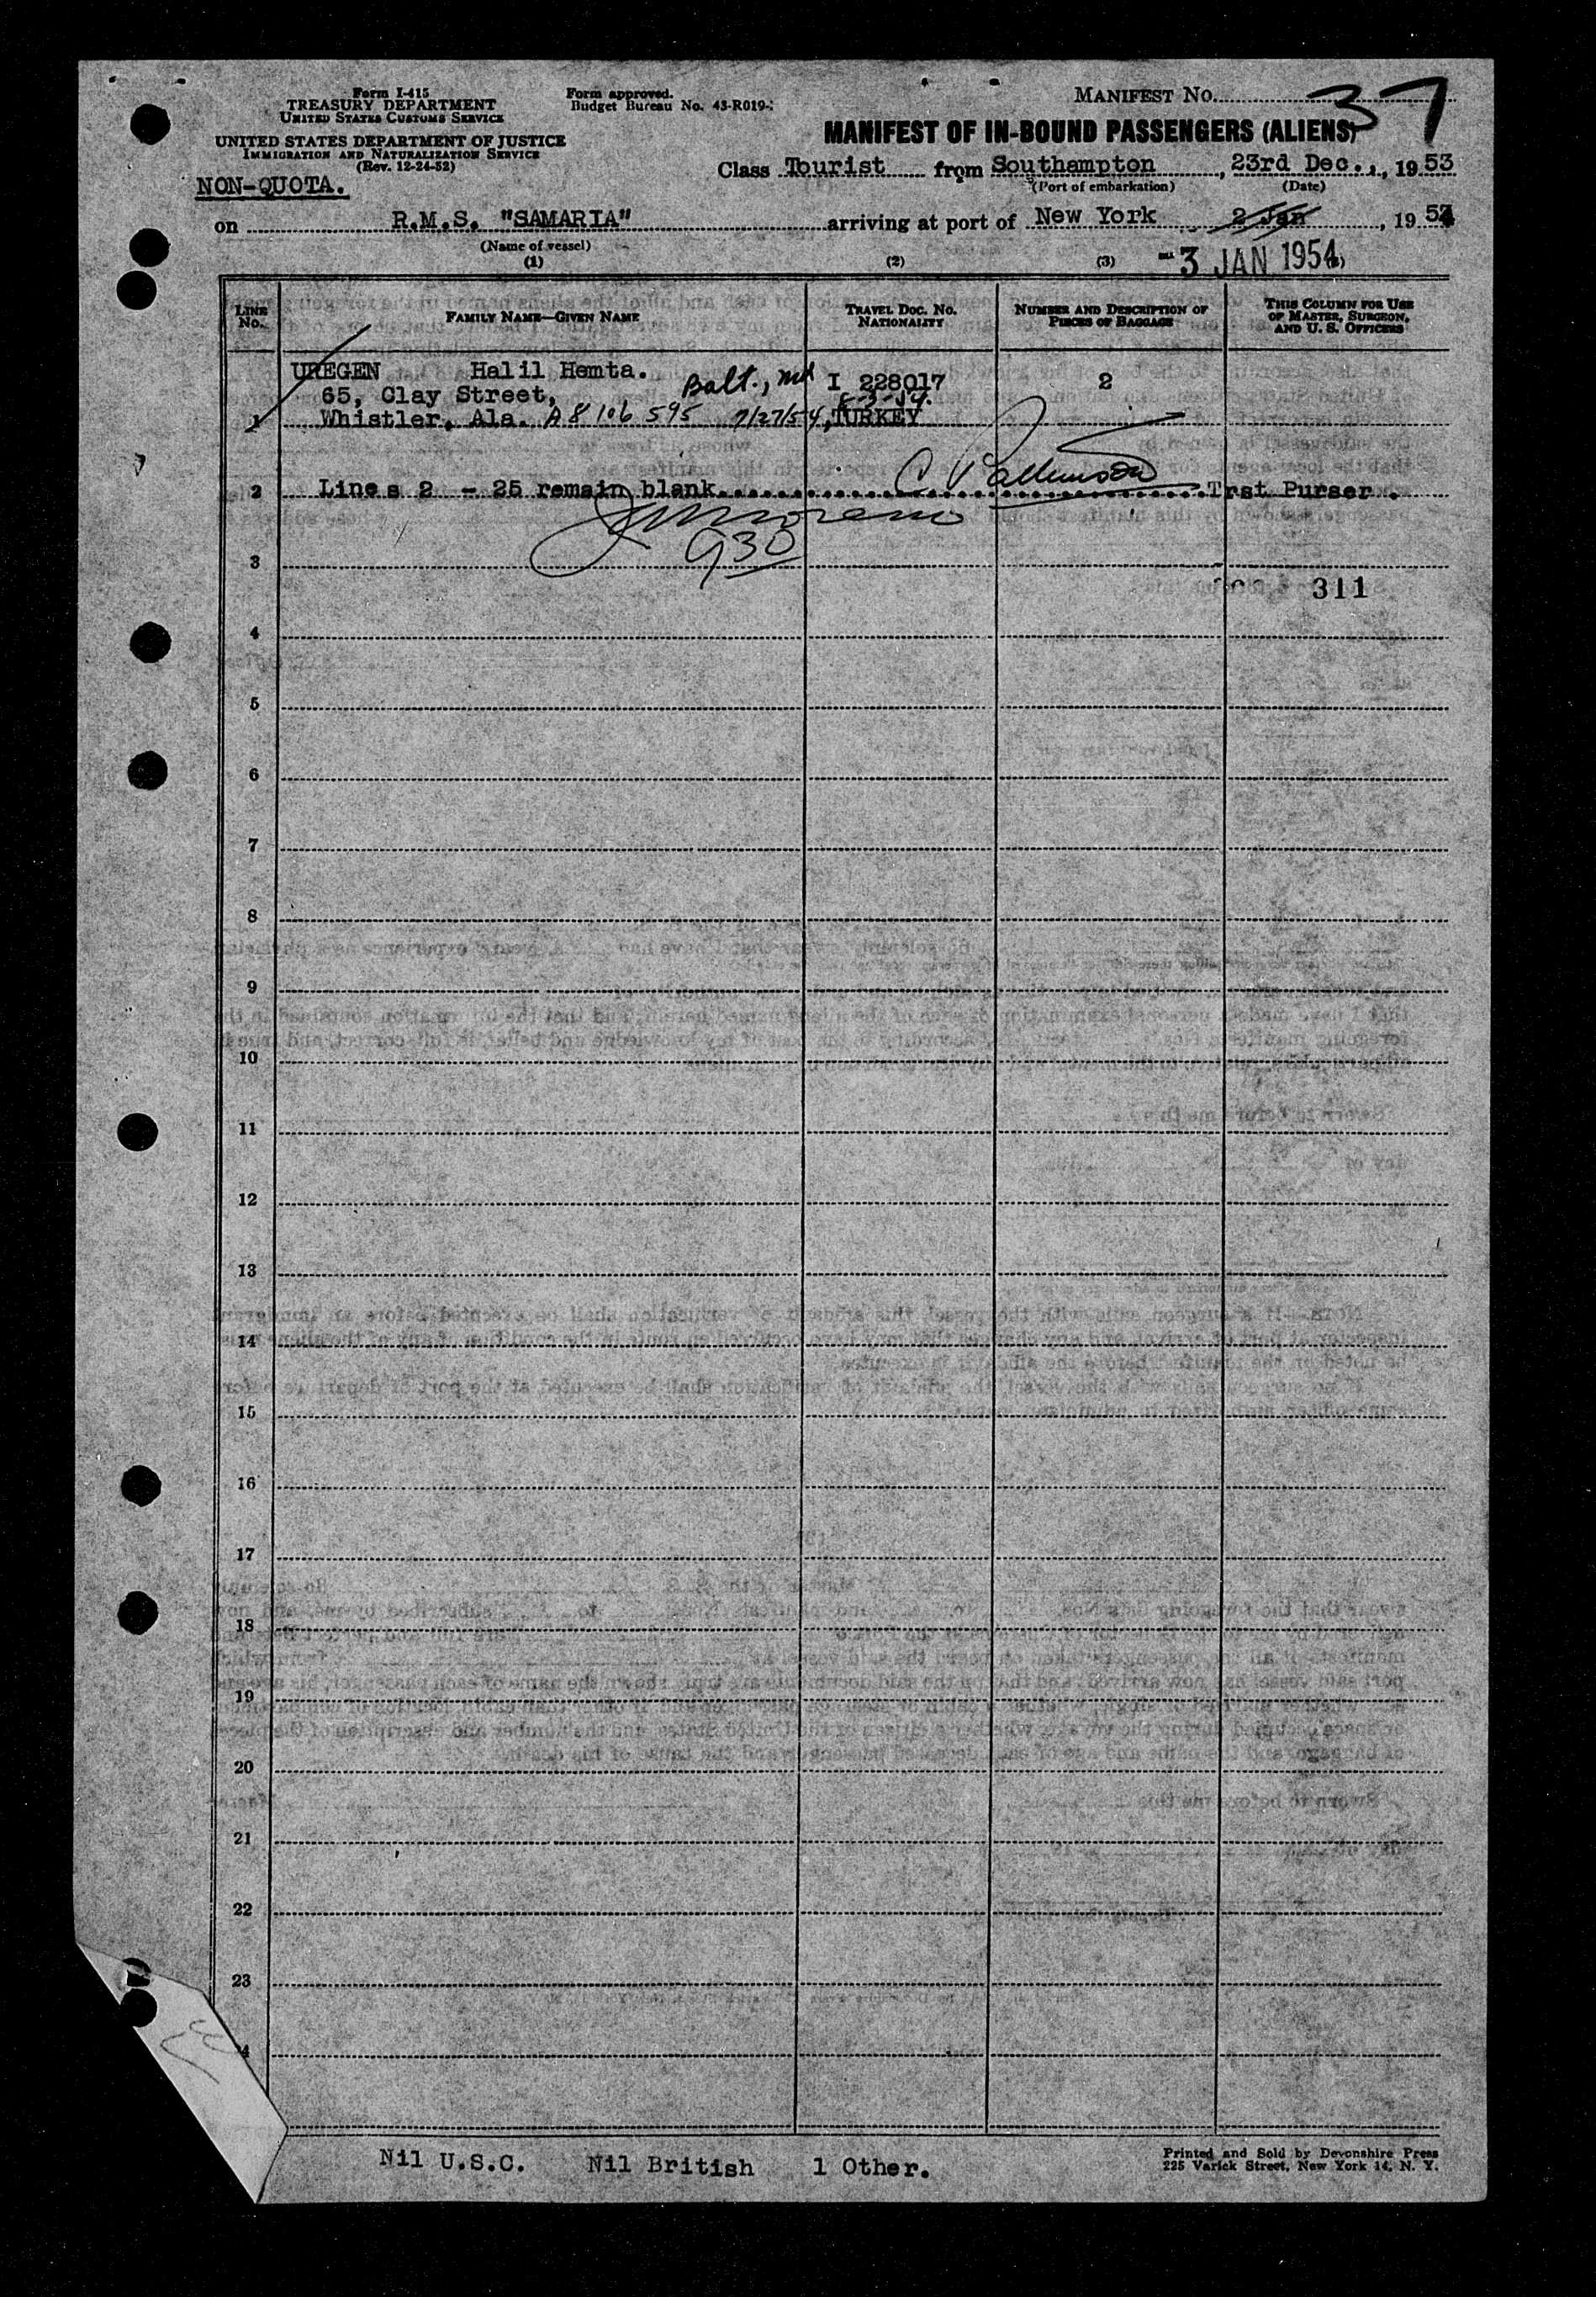 Form I-415
TREASURY DEPARTMENT
UNITED STATES CUSTOMS SERVICE
UNITED STATES DEPARTMENT OF JUSTICE
IMMIGRATION AND NATURALIZATION SERVICE
(Rev. 12-24-52)
NON-QUOTA.
Form approved.
Budget Bureau No. 43-R019-
MANIFEST NO. 37
MANIFEST OF IN-BOUND PASSENGERS (ALIENS)
Class Tourist from Southampton, 23rd Dec., 1953
(Port of embarkation) (Date)
on R.M.S. "SAMARIA" arriving at port of New York 2 Jan, 1954
(Name of vessel)
3 JAN 1954
(1) (2) (3)
LINE NO. FAMILY NAME—GIVEN NAME TRAVEL DOC. NO. NATIONALITY NUMBER AND DESCRIPTION OF PIECES OF BAGGAGE THIS COLUMN FOR USE OF MASTER, SURGEON, AND U. S. OFFICERS
UREGEN Halil Hemta. Balt., Md I 228017 2
65, Clay Street, 8-3-54.
1 Whistler, Ala. A8 106 595 7/27/54, TURKEY
2 Lines 2 - 25 remain blank. Trst Purser.
930
3
311
4
5
6
7
8
9
10
11
12
13
14
15
16
17
18
19
20
21
22
23
Nil U.S.C. Nil British 1 Other.
Printed and Sold by Devonshire Press
225 Varick Street, New York 14, N. Y.